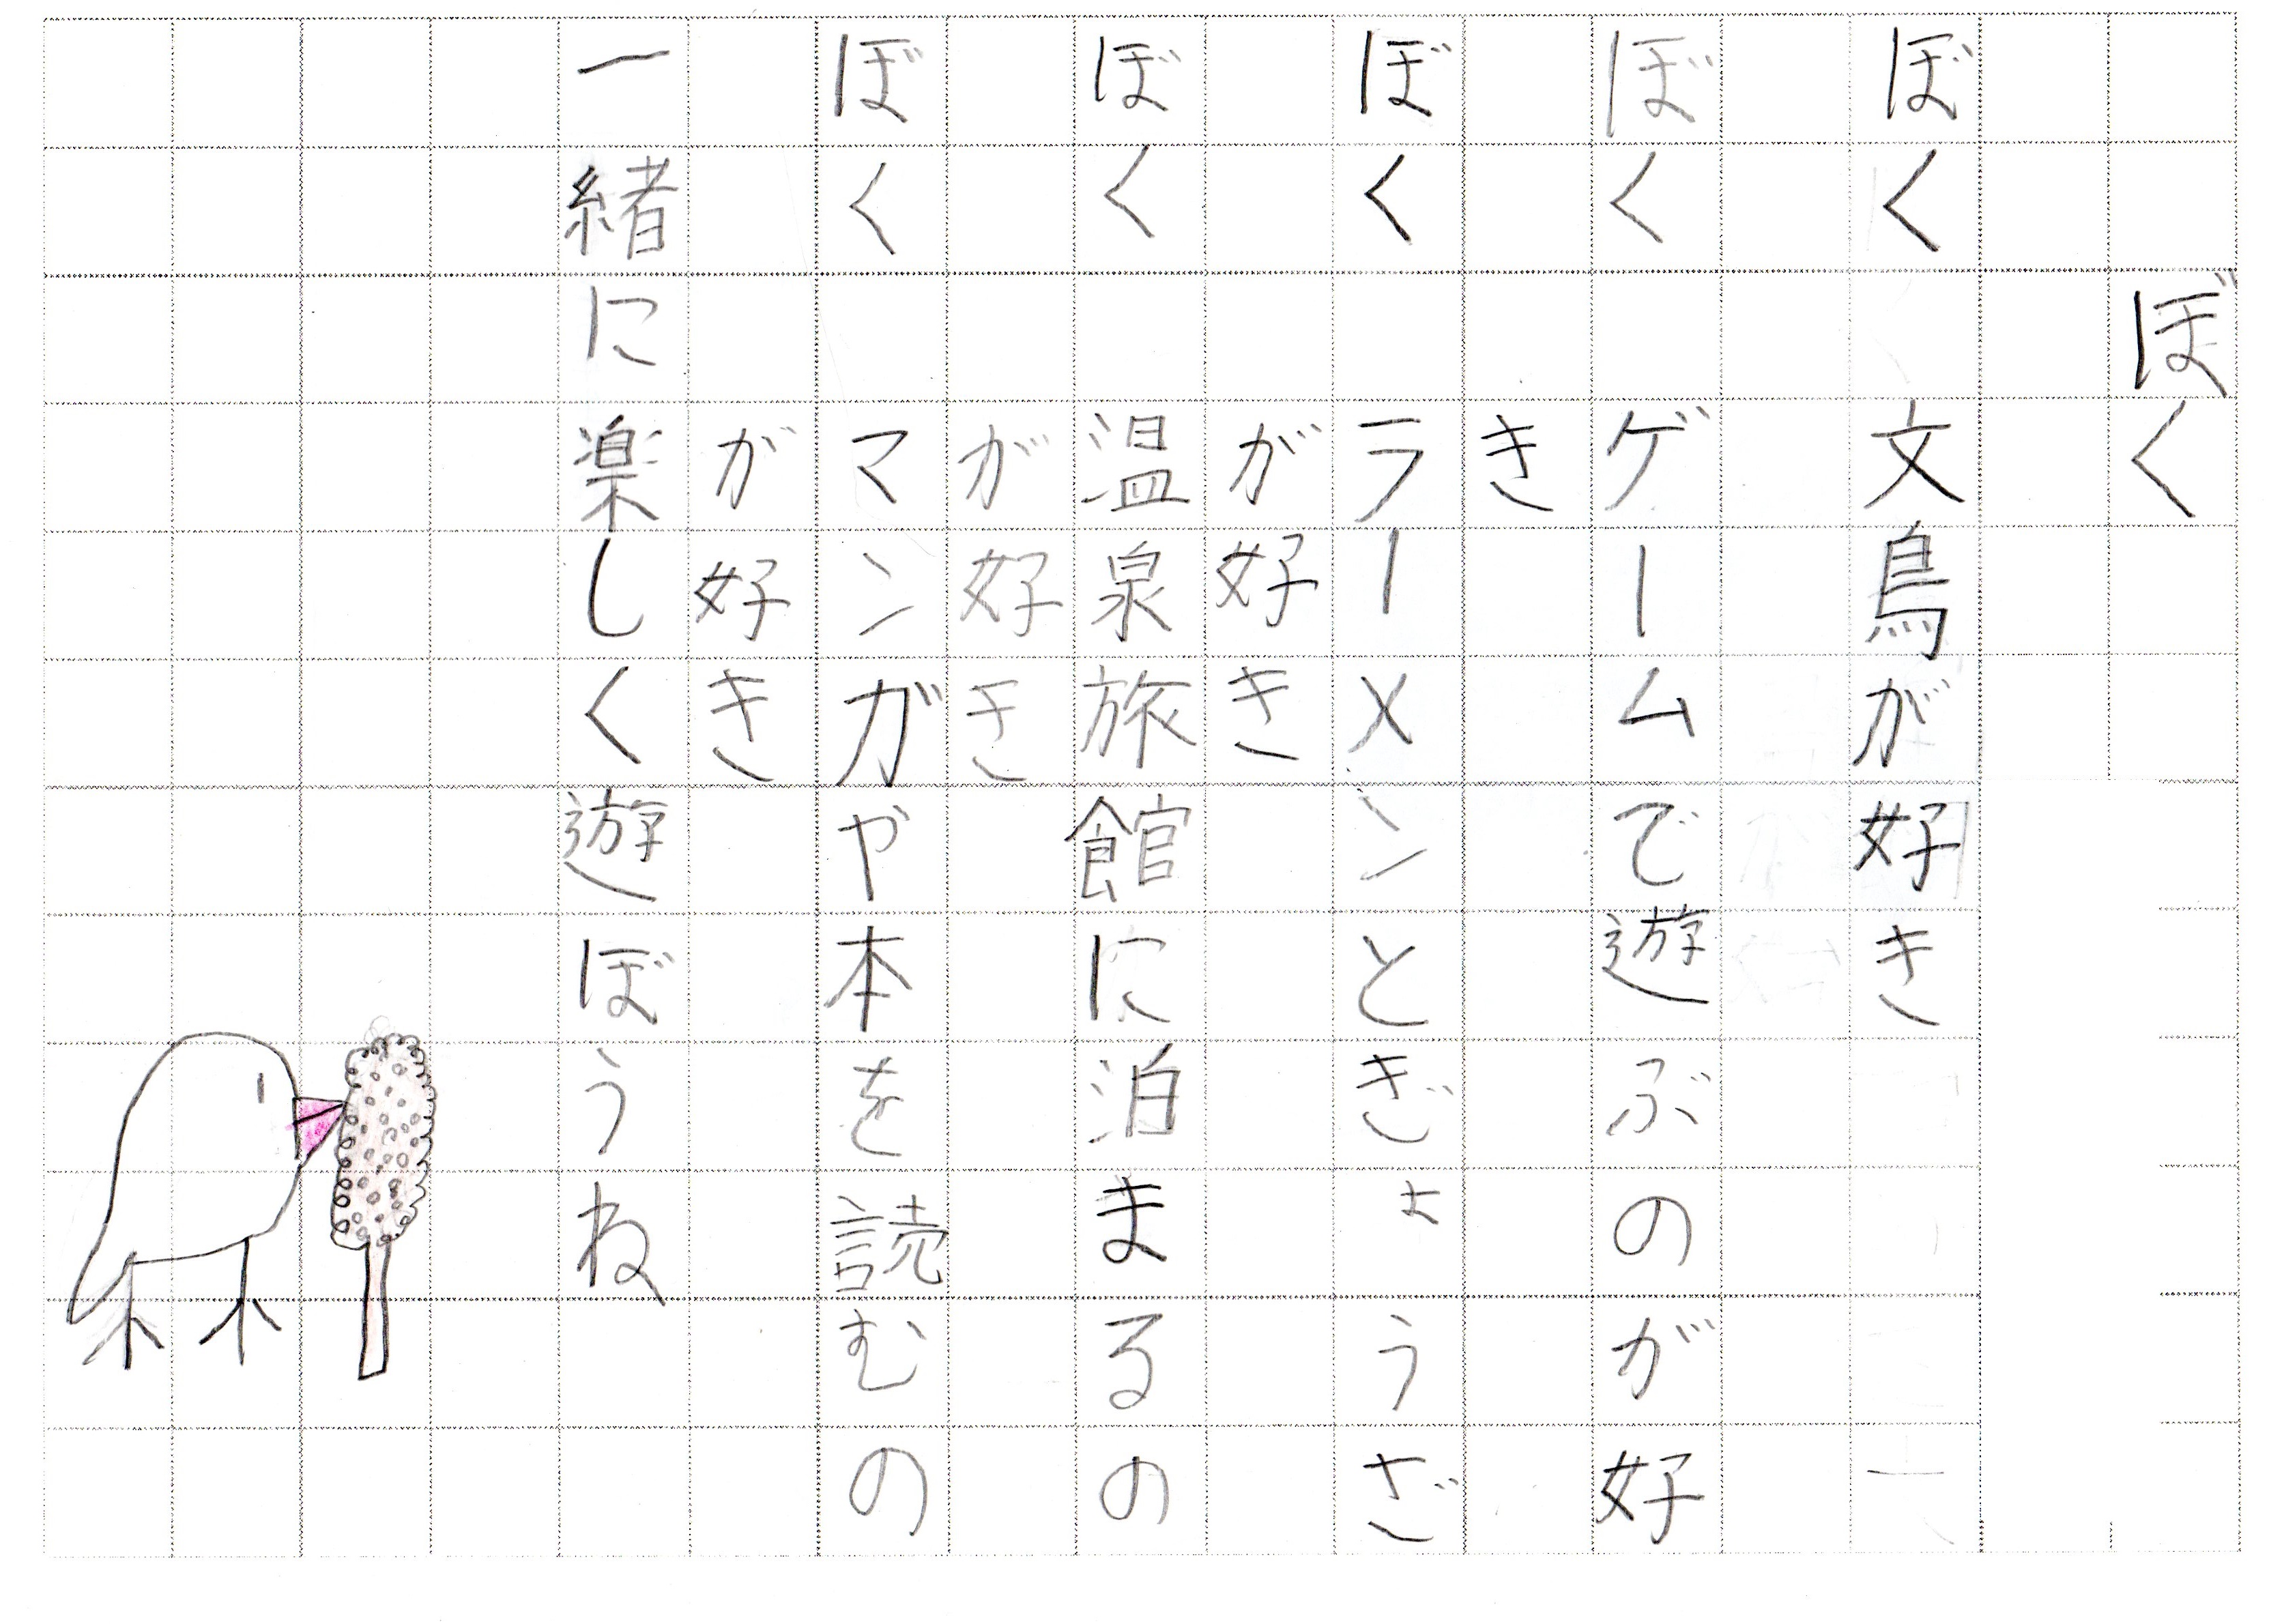 ぼく
ぼく 文鳥が好き
ぼく ゲームで遊ぶのが好
き
ぼく ラーメンとぎょうざ
が好き
ぼく 温泉旅館に泊まるの
が好き
ぼく マンガや本を読むの
が好き
一緒に楽しく遊ぼうね